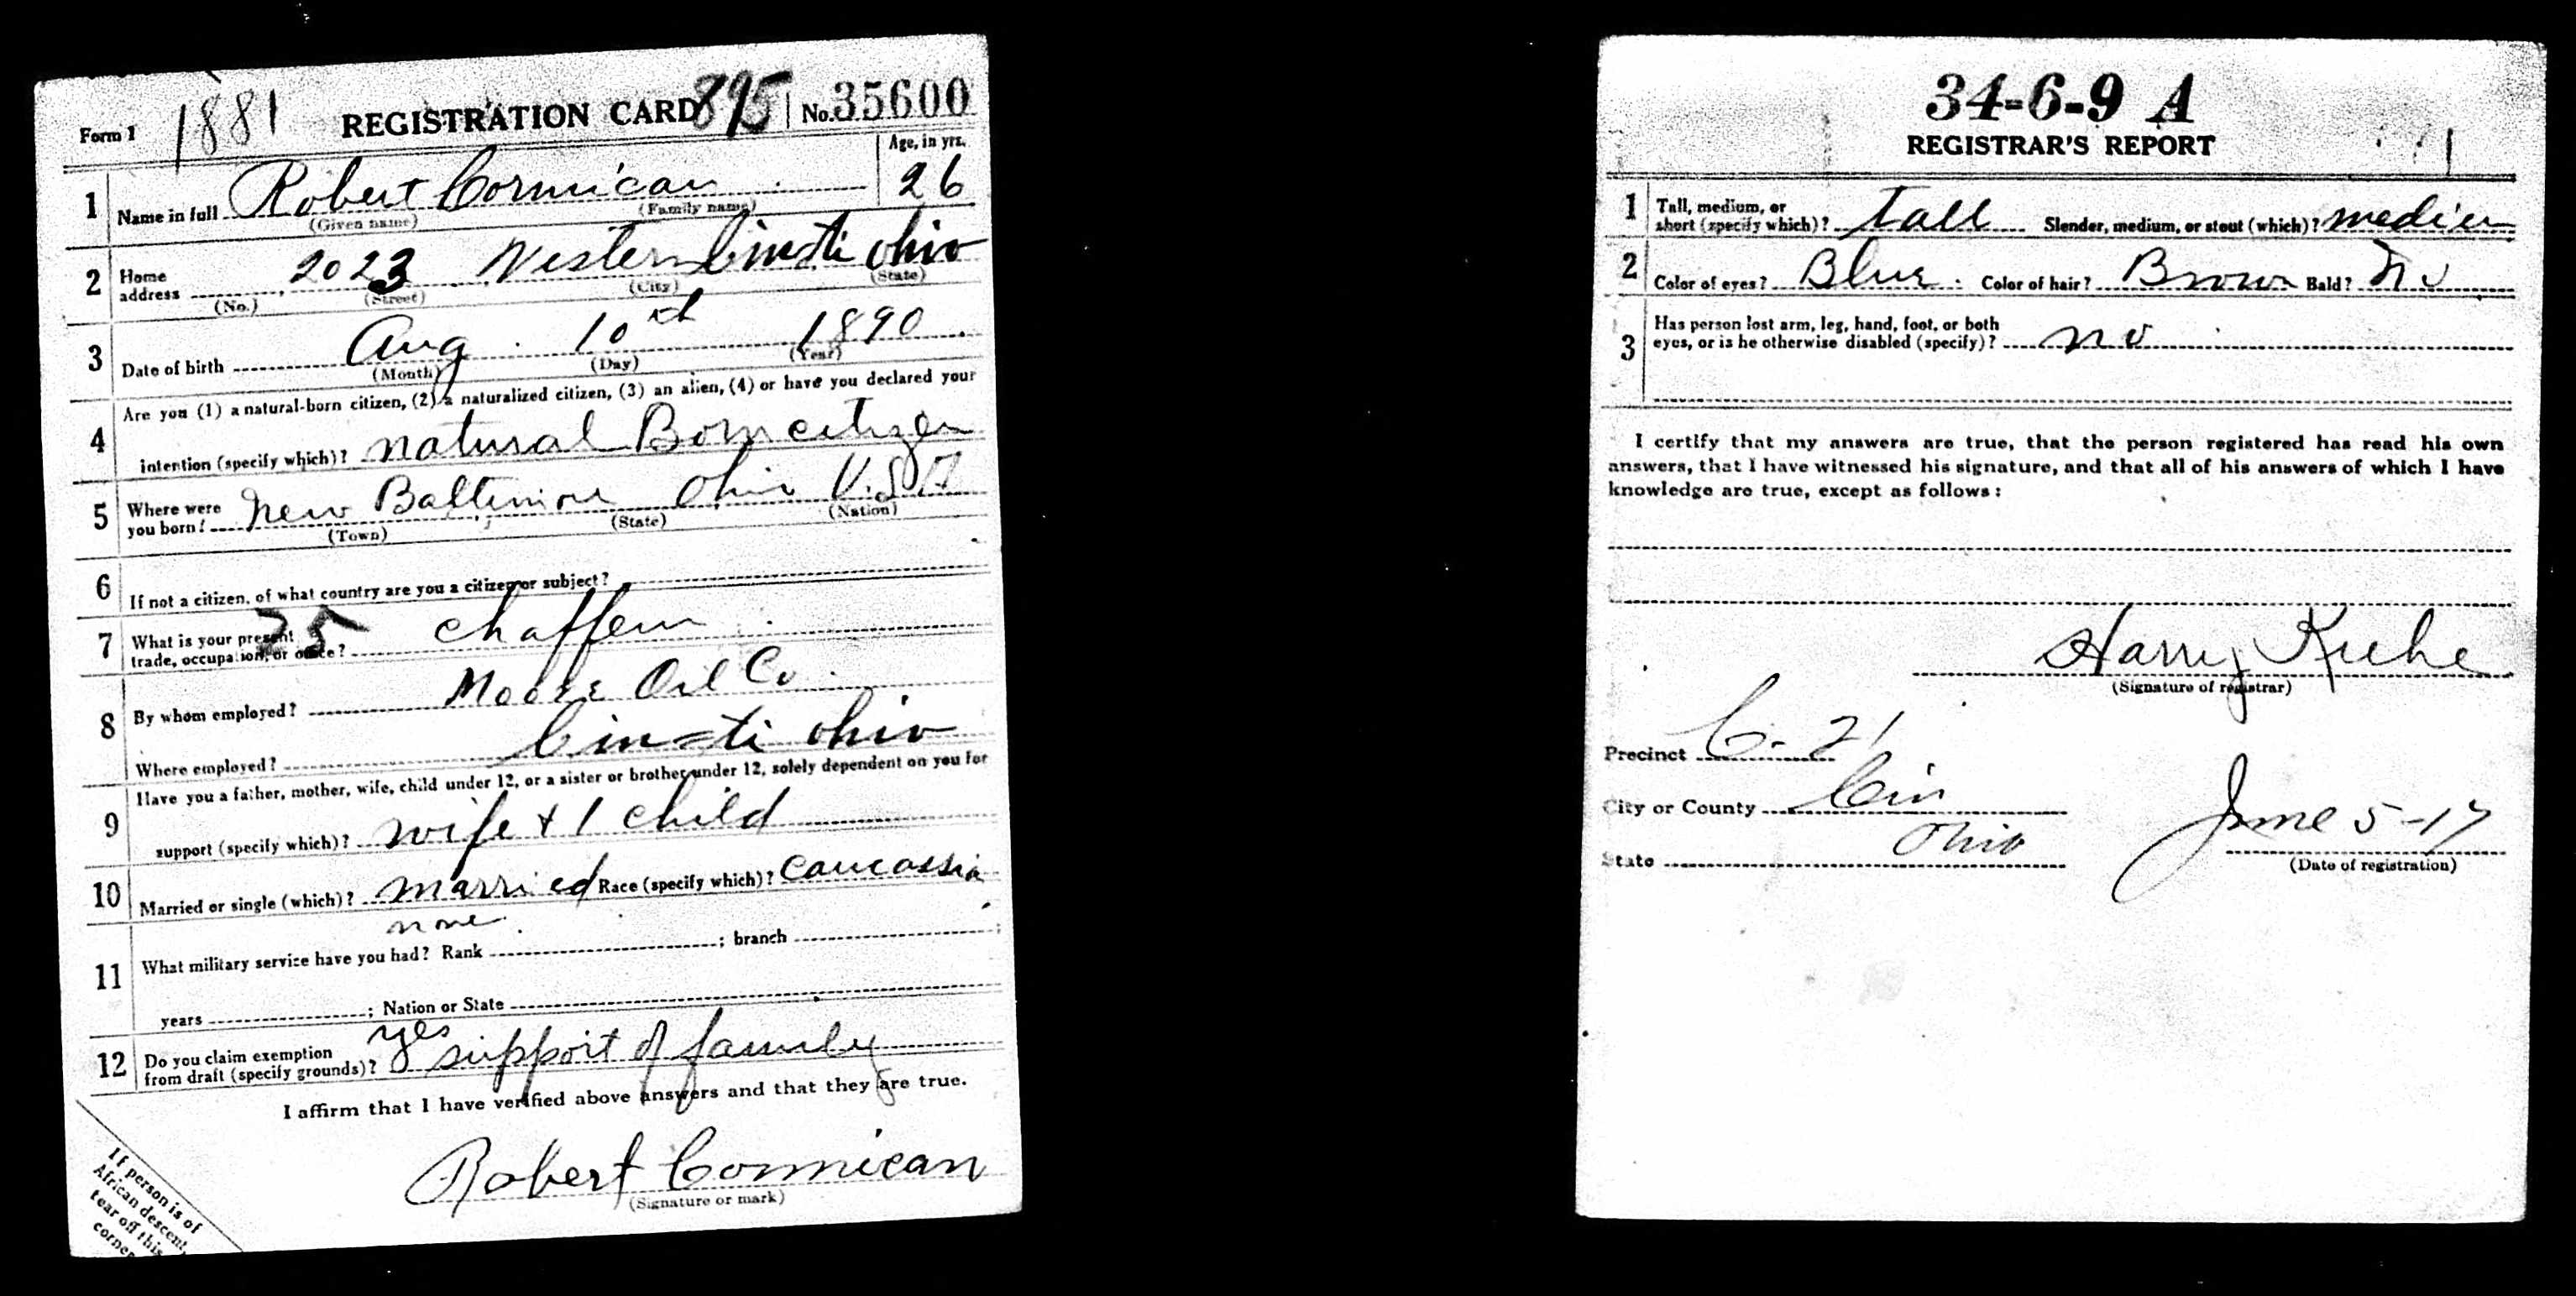 Form 1 1881 REGISTRATION CARD 895 No. 35600
Age, in yrs.
1 Name in full Robert Cormican 26
(Given name) (Family name)
2 Home address 2023 Western Cin=ti Ohio
(No.) (Street) (City) (State)
3 Date of birth Aug 10th 1890
(Month) (Day) (Year)
Are you (1) a natural-born citizen, (2) a naturalized citizen, (3) an alien, (4) or have you declared your
4 intention (specify which)? natural Born citizen
5 Where were you born? New Baltimore Ohio U.S.A
(Town) (State) (Nation)
6 If not a citizen, of what country are you a citizen or subject?
7 What is your present trade, occupation, or office? 25 chaffeur
8 By whom employed? Moore Oil Co
Where employed? Cin=ti Ohio
Have you a father, mother, wife, child under 12, or a sister or brother under 12, solely dependent on you for
9 support (specify which)? wife + 1 child
10 Married or single (which)? married Race (specify which)? Caucassia
none
11 What military service have you had? Rank ; branch ;
years ; Nation or State
12 Do you claim exemption from draft (specify grounds)? yes support of family
I affirm that I have verified above answers and that they are true.
Robert Cormican
(Signature or mark)
If person is of
African descent,
tear off this
corner
34-6-9 A
REGISTRAR'S REPORT
1 Tall, medium, or short (specify which)? tall Slender, medium, or stout (which)? medium
2 Color of eyes? Blue Color of hair? Brown Bald? No
3 Has person lost arm, leg, hand, foot, or both eyes, or is he otherwise disabled (specify)? no
I certify that my answers are true, that the person registered has read his own
answers, that I have witnessed his signature, and that all of his answers of which I have
knowledge are true, except as follows:
Harry
(Signature of registrar)
Precinct C-21
City or County Cin
State Ohio June 5-17
(Date of registration)